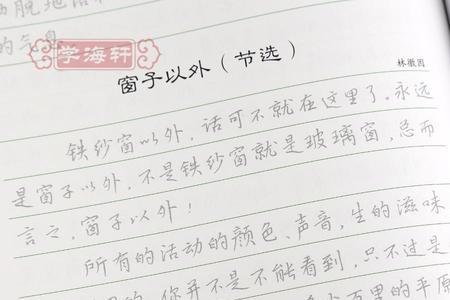 西脱地
的气息
学海轩
窗子以外(节选)
林徽因
铁纱窗以外,话可不就在这里了。永远
是窗子以外,不是铁纱窗就是玻璃窗,总而
言之,窗子以外!
所有的活动的颜色、声音,生的滋味
的,你并不是不能看到,只不过是
百里的平原